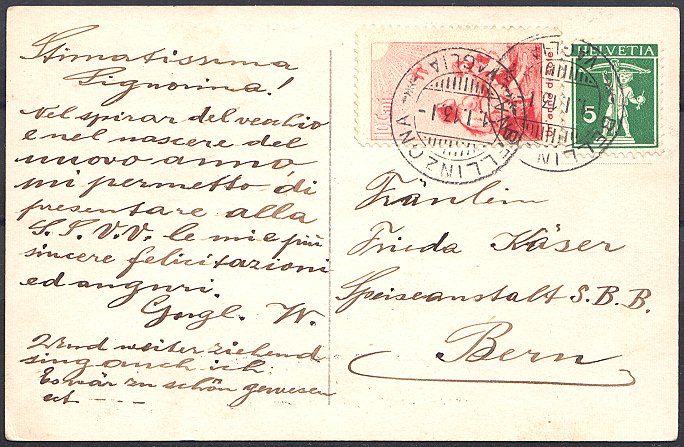 Stimatissima
Signorina!
Nel spirar del vecchio
e nel nascere del
nuovo anno
mi permetto di
presentare alla
S. S. V. V. le mie più
sincere felicitazioni
ed auguri.
Gugl. W.
Und weiter ziehend
sing auch ich:
Es wär zu schön gewesen
ect - - - -
HELVETIA
5
10 Cent.
BELLINZONA
VAGLIA
1.I.13.1-
BELLINZONA
VAGLIA
Fräulein
Frieda Käser
Speiseanstalt S.B.B.
Bern